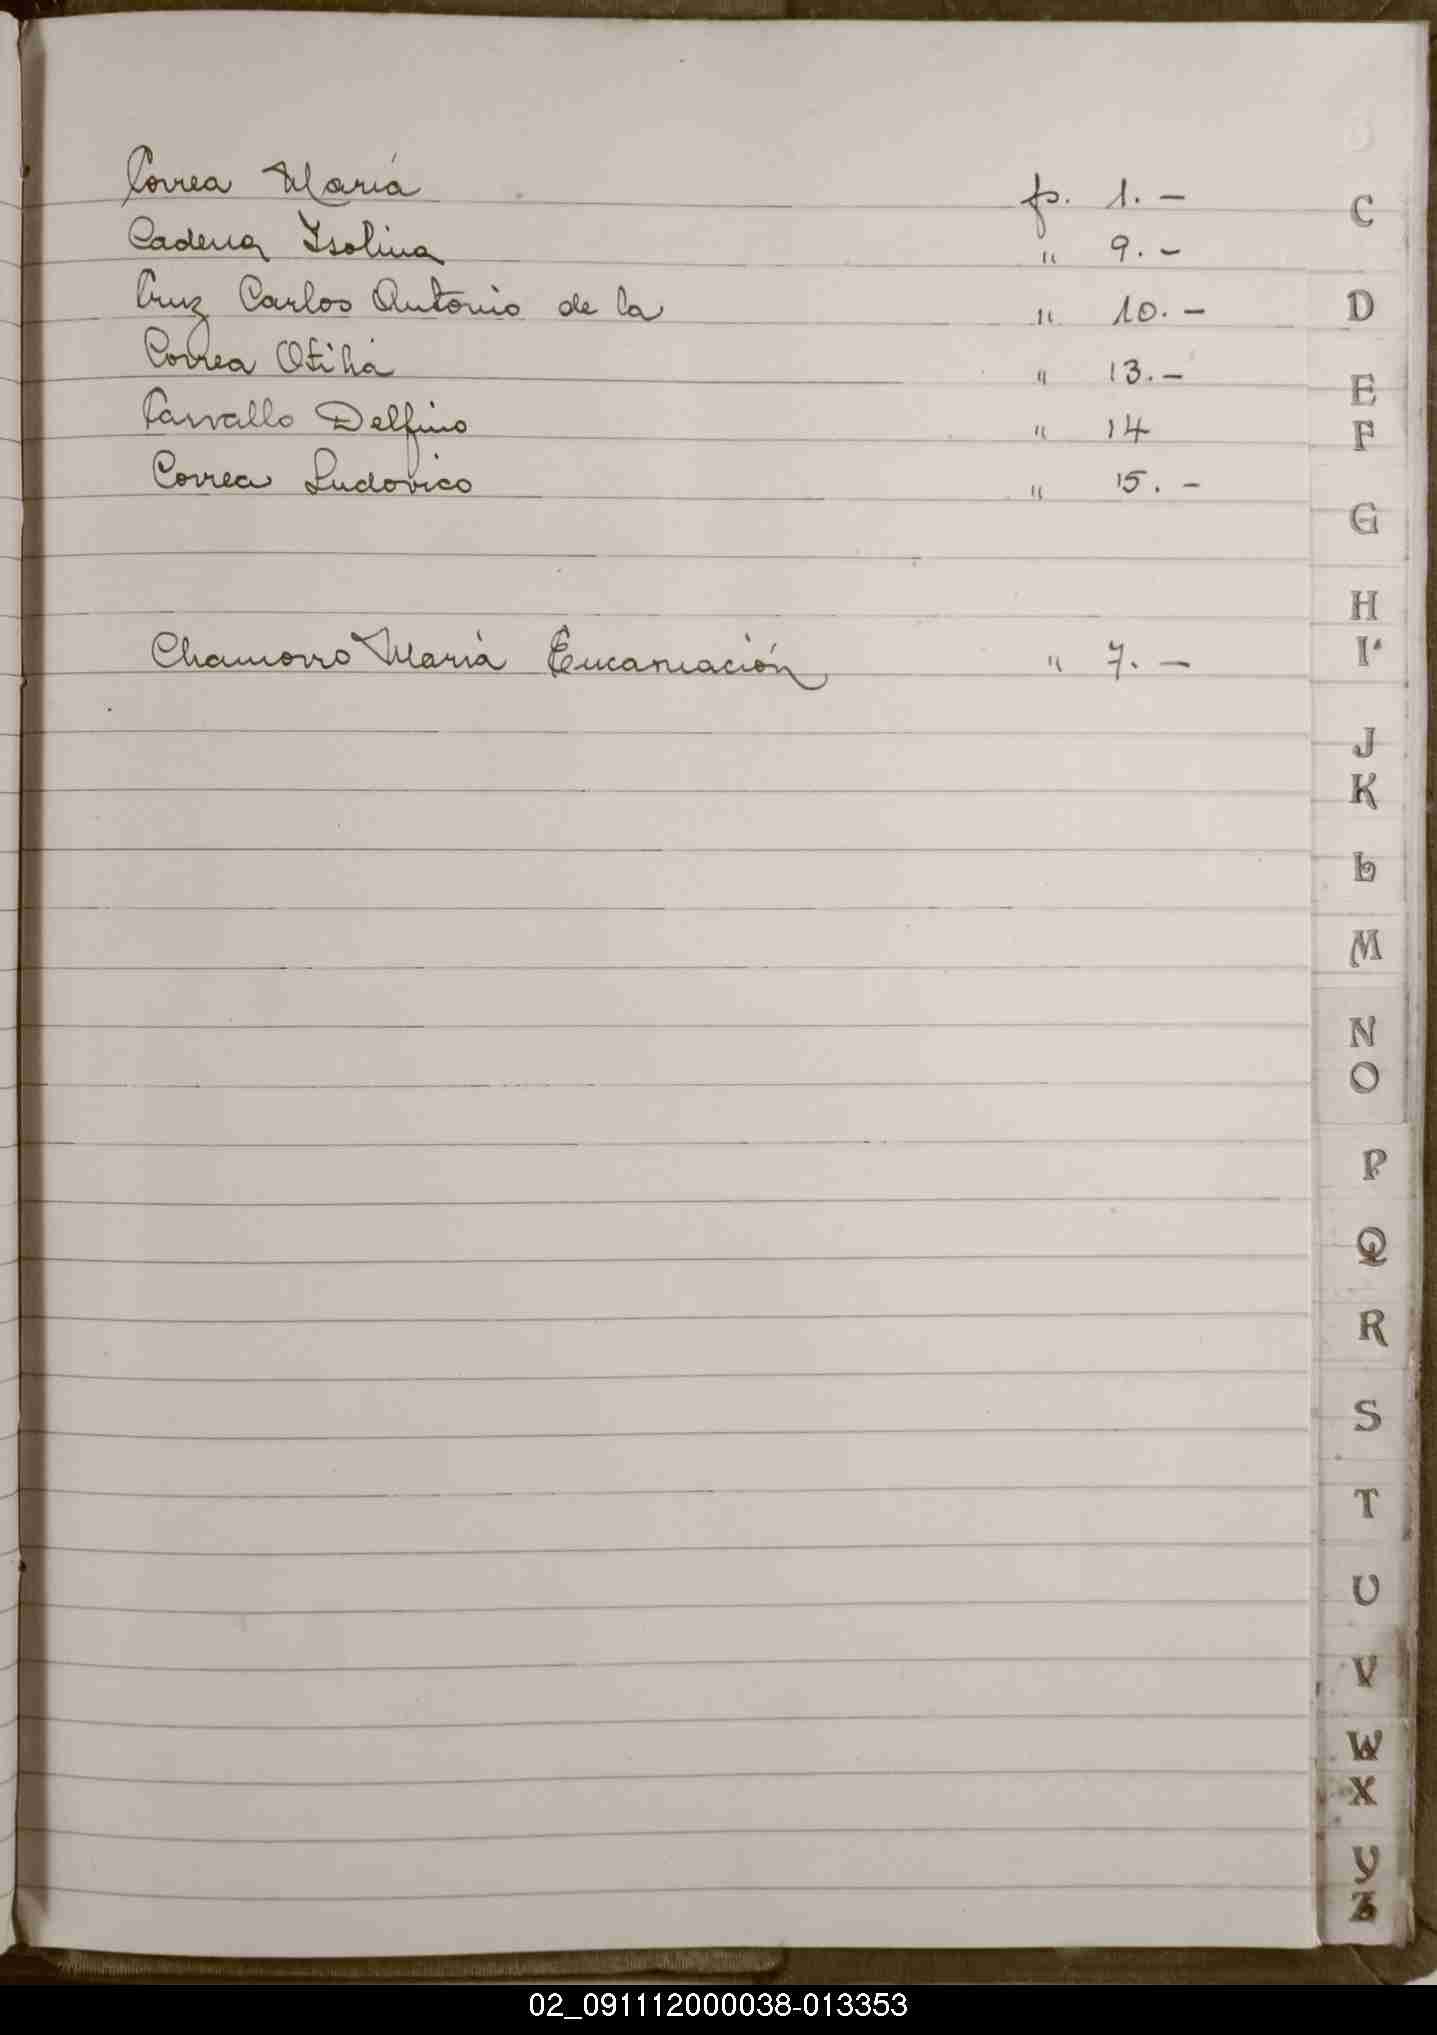 Correa María fs. 1. -
Cadena Isolina " 9. -
Cruz Carlos Antonio de la " 10. -
Correa Otilia " 13. -
Carvallo Delfino " 14
Correa Ludovico " 15. -
Chamorro María Encarnación " 7. -
C
D
E
F
G
H
I
J
K
L
M
N
O
P
Q
R
S
T
U
V
W
X
Y
Z
02_091112000038-013353